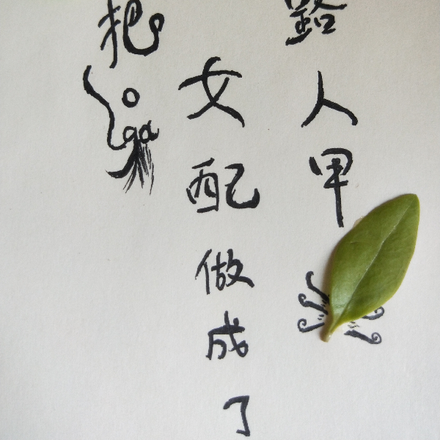 把
女配做成了
路人甲